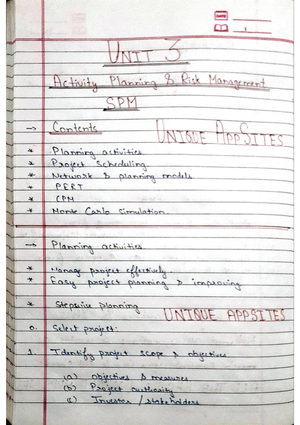 UNIT 3
Activity Planning & Risk Management
SPM
→ Contents
UNIQUE APPSITES
* Planning activities
* Project Scheduling
* Network & planning models
* PERT
* CPM
* Monte Carlo Simulation.
→ Planning activities
* Manage project effectively.
* Easy project planning & improving
* Stepwise planning
UNIQUE APPSITES
0. Select project.
1. Identify project scope & objectives
(a) objectives & measures
(b) Project authority
(c) Investor / stakeholders